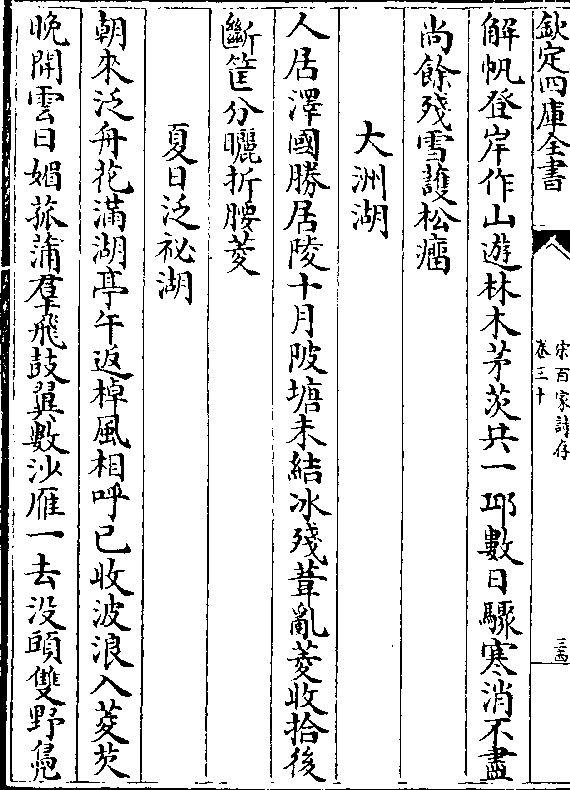 欽定四庫全書
宋百家詩存
卷三十
三四
解帆登岸作山遊林木茅茨共一邱數日驟寒消不盡
尚餘殘雪護松瘤
大洲湖
人居澤國勝居陵十月陂塘未結冰殘葦亂菱收拾後
斷筐分曬折腰菱
夏日泛祕湖
朝來泛舟花滿湖亭午返棹風相呼已收波浪入菱芡
晚開雲日媚菰蒲羣飛鼓翼數沙雁一去没頭雙野鳬